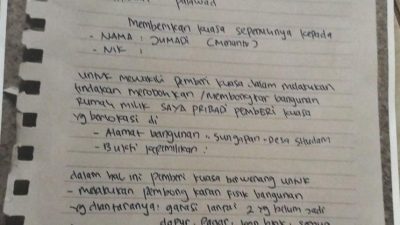 Memberikan kuasa sepenuhnya kepada
- NAMA : JUMADI (Menantu)
- NIK :
UNTUK MEWAKILI Pemberi kuasa dalam melakukan
tindakan merobohkan / Membongkar bangunan
RUMAH MILIK SAYA PRIBADI PEMBERI kuasa
yg berlokasi di
- Alamat bangunan : Sungipan - Desa
- Bukti kepemilikan :
dalam hal ini pemberi kuasa berwenang untuk
- melakukan pembongkaran fisik bangunan
yg diantaranya: garasi lantai 2 yg belum jadi
dapur, pagar,